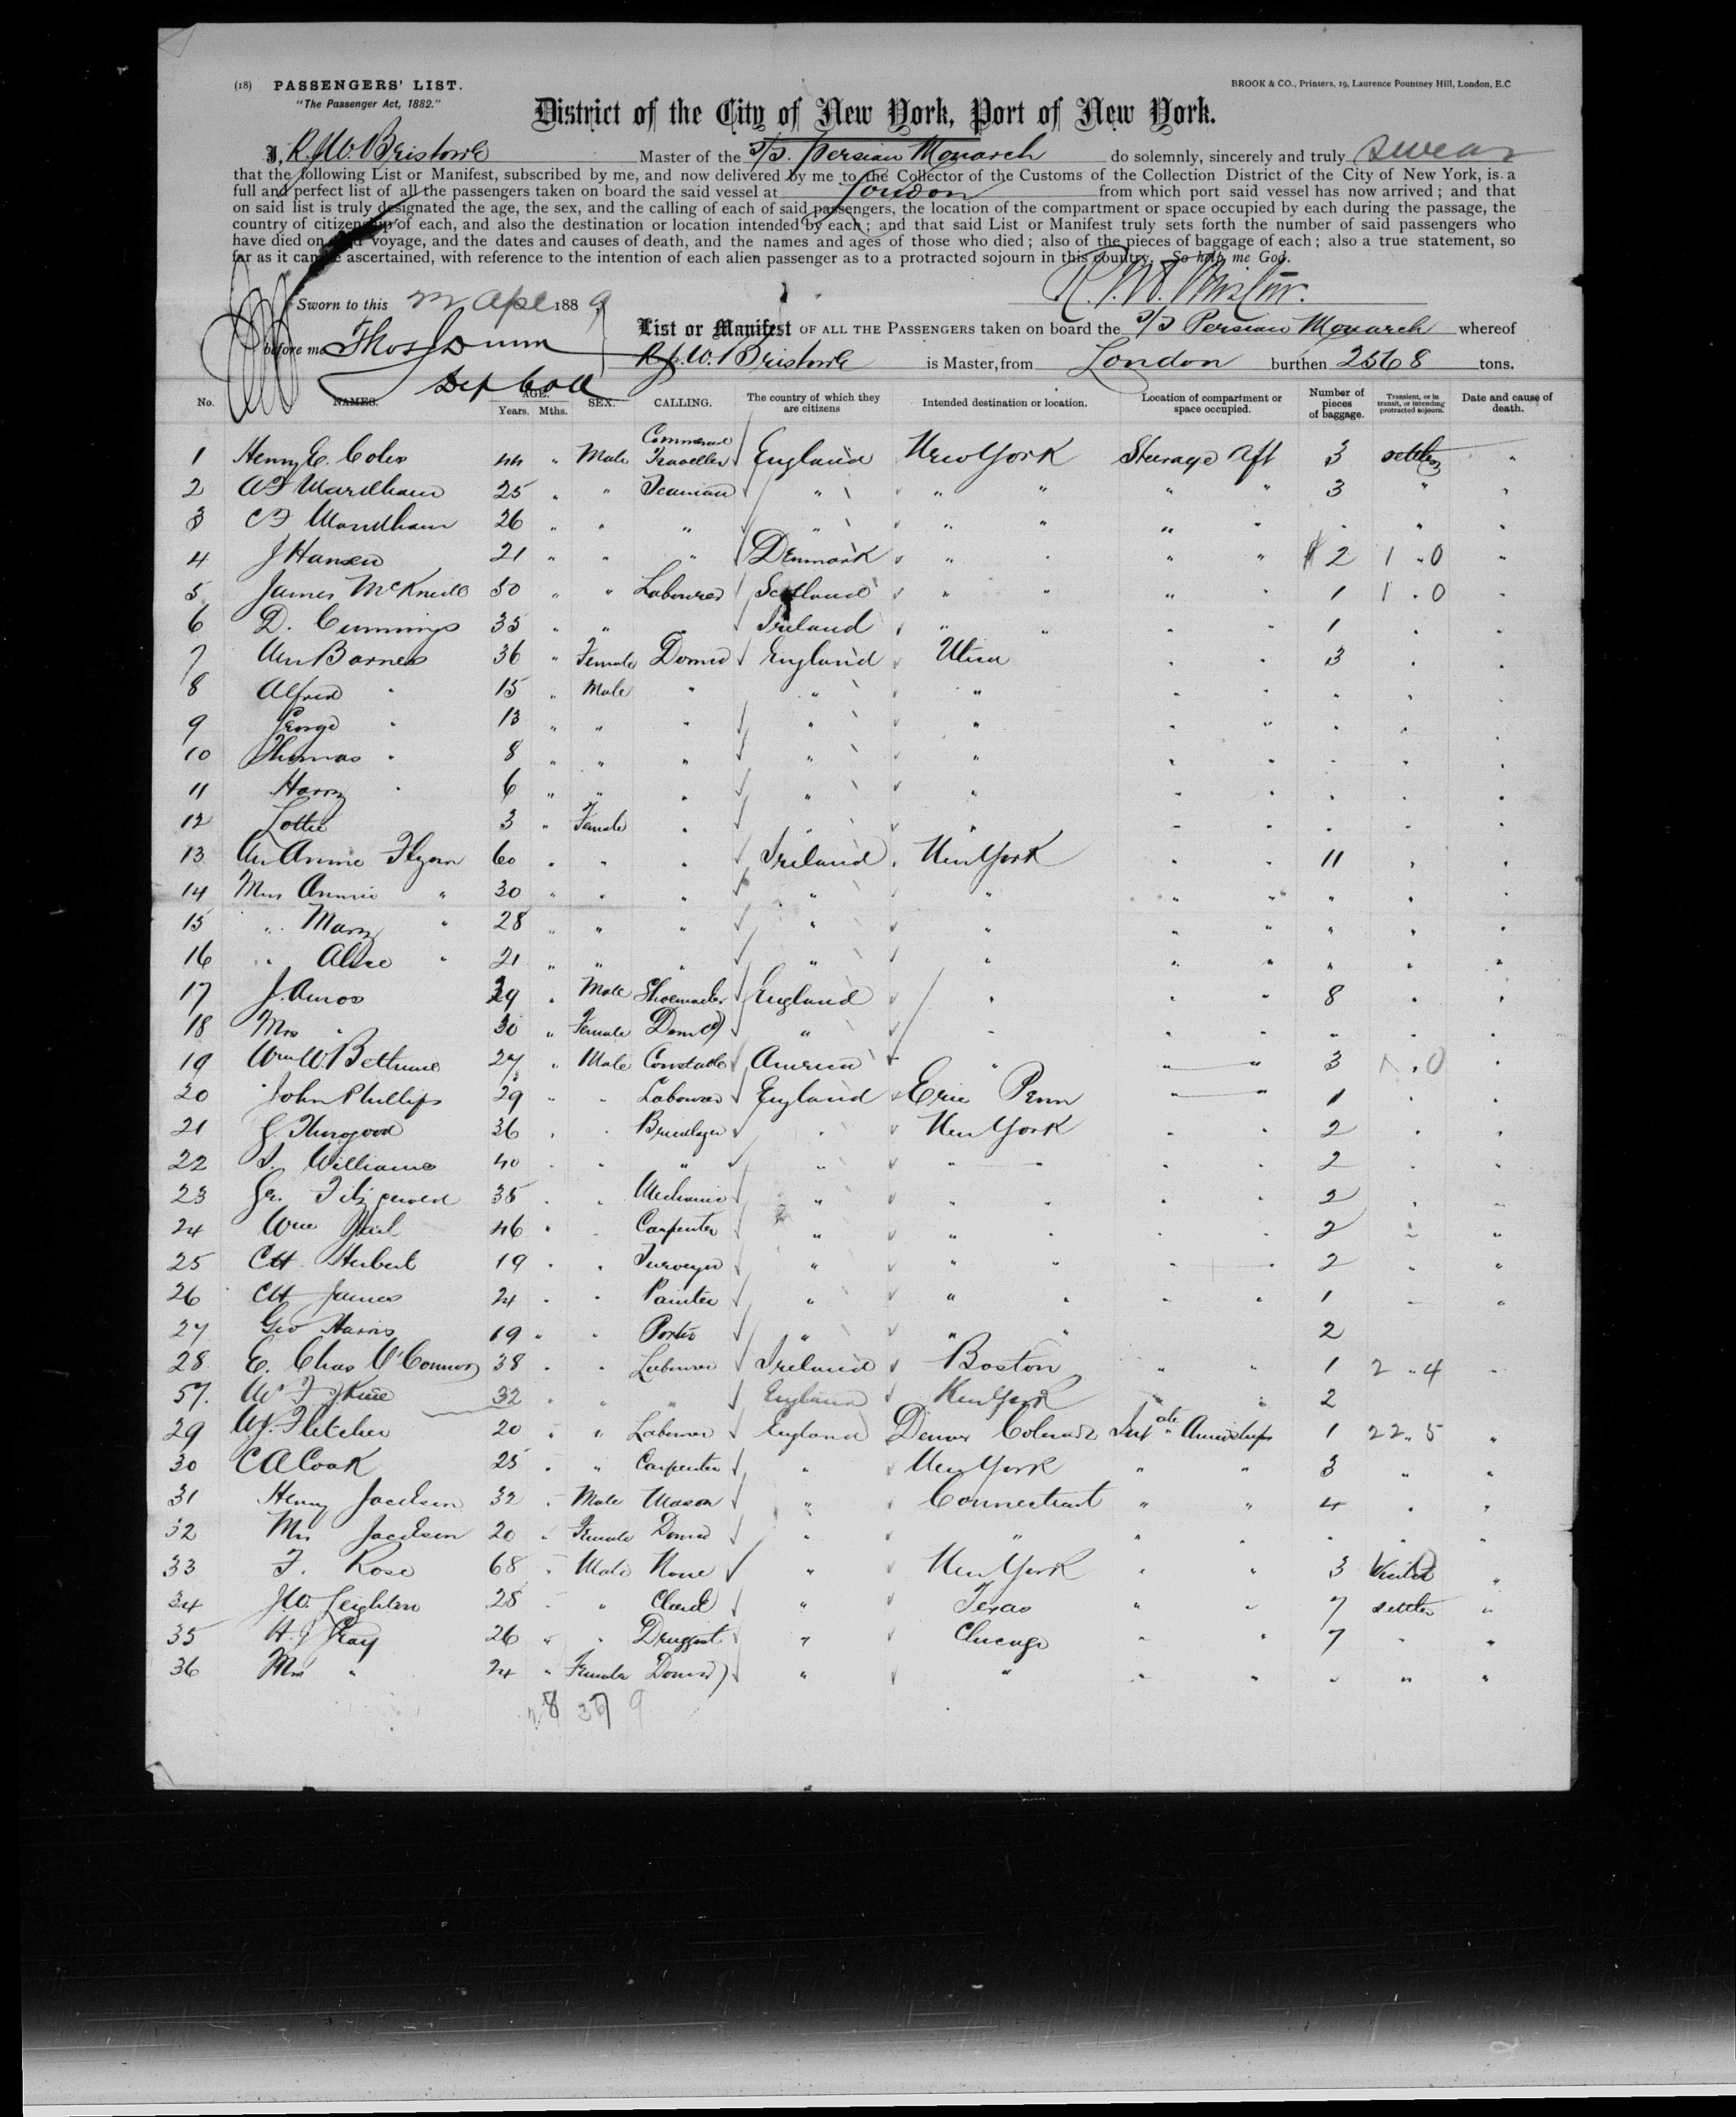 (18) PASSENGERS' LIST.
BROOK & CO., Printers, 19, Laurence Pountney Hill, London, E.C
"The Passenger Act, 1882."
District of the City of New York, Port of New York.
I, R.J.W. Bristowe Master of the S/S. Persian Monarch do solemnly, sincerely and truly swear
that the following List or Manifest, subscribed by me, and now delivered by me to the Collector of the Customs of the Collection District of the City of New York, is a
full and perfect list of all the passengers taken on board the said vessel at London from which port said vessel has now arrived; and that
on said list is truly designated the age, the sex, and the calling of each of said passengers, the location of the compartment or space occupied by each during the passage, the
country of citizenship of each, and also the destination or location intended by each; and that said List or Manifest truly sets forth the number of said passengers who
have died on said voyage, and the dates and causes of death, and the names and ages of those who died; also of the pieces of baggage of each; also a true statement, so
far as it can be ascertained, with reference to the intention of each alien passenger as to a protracted sojourn in this country. So help me God.
Sworn to this 22 Apl 1889
List or Manifest OF ALL THE PASSENGERS taken on board the S/S Persian Monarch whereof
before me Thos Dunn
R.J.W. Bristowe is Master, from London burthen 2568 tons.
Dep Coll
No. NAMES. AGE. Years. Mths. SEX. CALLING. The country of which they are citizens Intended destination or location. Location of compartment or space occupied. Number of pieces of baggage. Transient, or in transit, or intending protracted sojourn. Date and cause of death.
1 Henry E. Coles 44 " Male Commercial Traveller England New York Steerage Aft 3 "
2 25 " " Seaman " " " " " 3 " "
3 26 " " " " " " " " " " "
4 J Hansen 21 " " " Denmark " " " " 2 1 " 0 "
5 James McKneill 30 " " Labourer Scotland " " " " 1 1 " 0 "
6 D. Cummings 35 " " " Ireland " " " " 1 " "
7 Barnes 36 " Female Domes England Utica " " 3 " "
8 Alfred " 15 " Male " " " " " " " "
9 George " 13 " " " " " " " " " "
10 Thomas " 8 " " " " " " " " " "
11 Harry " 6 " " " " " " " " " "
12 Lottie 3 " Female " " " " " " " "
13 Annie Flynn 60 " " " Ireland New York " " 11 " "
14 Miss Annie " 30 " " " " " " " " " "
15 " Mary " 28 " " " " " " " " " "
16 " Alice " 21 " " " " " " " " " "
17 J. Amos 29 " Male Shoemaker England " " " 8 " "
18 Mrs " 30 " Female Dom " " " " " " "
19 Wm W. Bethune 27 " Male Constable America " " " 3 1 " 0 "
20 John Phillips 29 " " Labourer England Erie Penn " " 1 " "
21 Thurogood 36 " " Bricklayer " New York " " 2 " "
22 Williams 40 " " " " " " " " 2 " "
23 Fitzgerald 35 " " Mechanic " " " " " 2 " "
24 Wm 46 " " Carpenter " " " " " 2 " "
25 CH Herbert 19 " " Surveyor " " " " " 2 " "
26 CH James 24 " " Painter " " " " " 1 " "
27 Geo Harris 19 " " Porter " " " 2
28 E. Chas O'Connor 38 " " Labourer Ireland Boston " " 1 2 " 4 "
57. 32 " " " England New York " " 2
29 W.J. Fletcher 20 " " Labourer England Denver Colorado Amidships 1 22 " 5 "
30 C A Cook 25 " " Carpenter " New York " " 3 " "
31 Henry Jacobson 32 " Male Mason " Connecticut " " 4 " "
32 Mrs Jacobson 20 " Female Domes " " " " " " "
33 F. Rose 68 " Male None " New York " " 3 "
34 J.W. Leighton 28 " " Clerk " Texas " " 7 settler "
35 H.J. Gray 26 " " Druggist " Chicago " " 7 " "
36 Mrs " 24 " Female Domes " " " " " " "